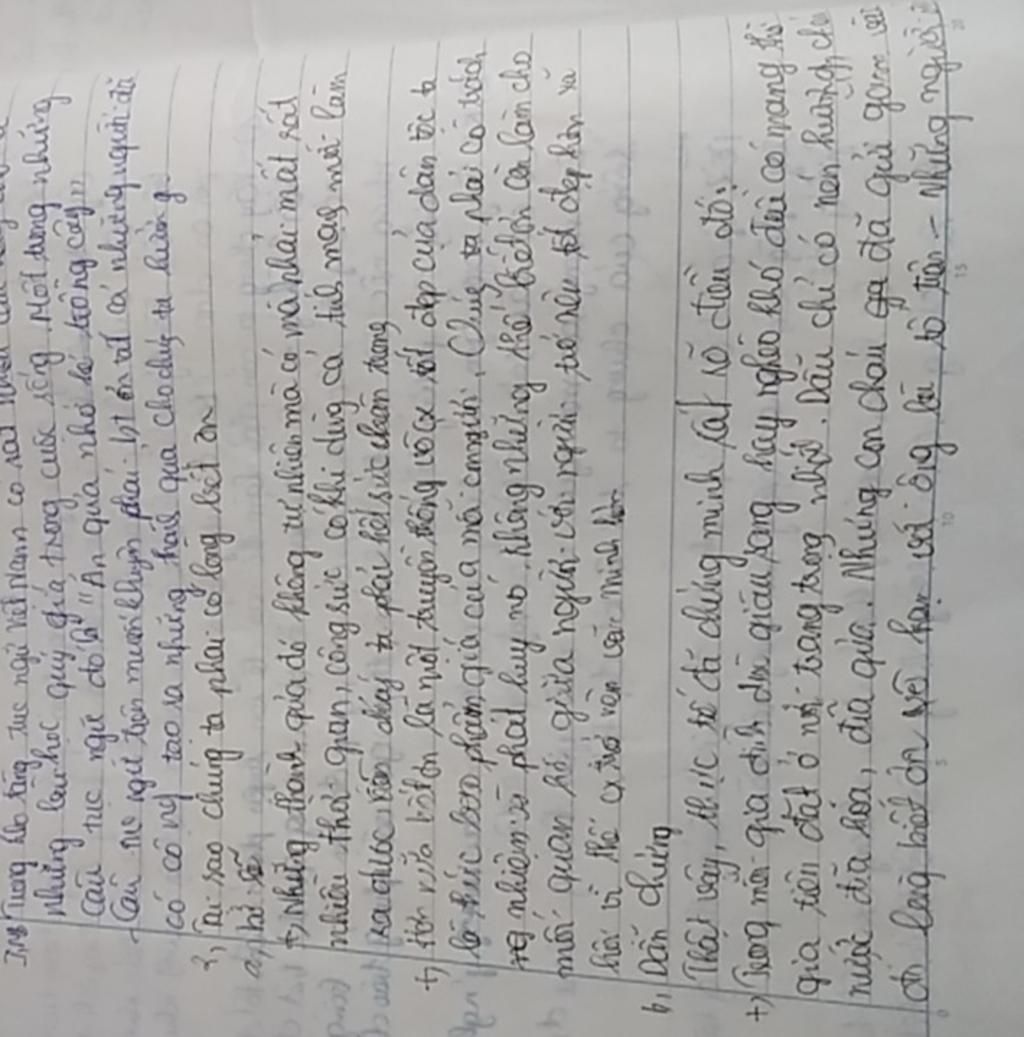 Trong kho tàng tục ngữ Việt Nam có rất nhiều câu
những bài học quý giá trong cuộc sống. Một trong những
câu tục ngữ đó là "Ăn quả nhớ kẻ trồng cây"
- Câu tục ngữ trên muốn khuyên phải biết ơn tất cả những người đã
có công tạo ra những thành quả cho chúng ta hưởng.
2, Tại sao chúng ta phải có lòng biết ơn
a,
+) Những thành quả đó không tự nhiên mà có mà phải mất rất
nhiều thời gian, công sức có khi dùng cả tính mạng mới làm
ra được nên chúng ta phải hết sức chân trọng
+) Hơn nữa biết ơn là một truyền thống vô cx tốt đẹp của dân tộc ta
là thức đo phẩm giá của mỗi con người. Chúng ta phải có trách
nhiệm và phát huy nó. Không những thế biết ơn còn làm cho
mối quan hệ giữa người với người trở nên tốt đẹp hơn xã
hội vì thế cx trở nên văn minh hơn
b, Dẫn chứng
Thật vậy, thực tế đã chứng minh rất rõ điều đó:
+) Trong mỗi gia đình dù giàu sang hay nghèo khó đều có mang thờ
gia tiên đặt ở nơi trang trọng nhất. Dẫu chỉ có nén hương, chén
nước, đĩa hóa, đĩa quả. Những con cháu đã gửi gắm
đó lòng biết ơn với ông bà tổ tiên - những người